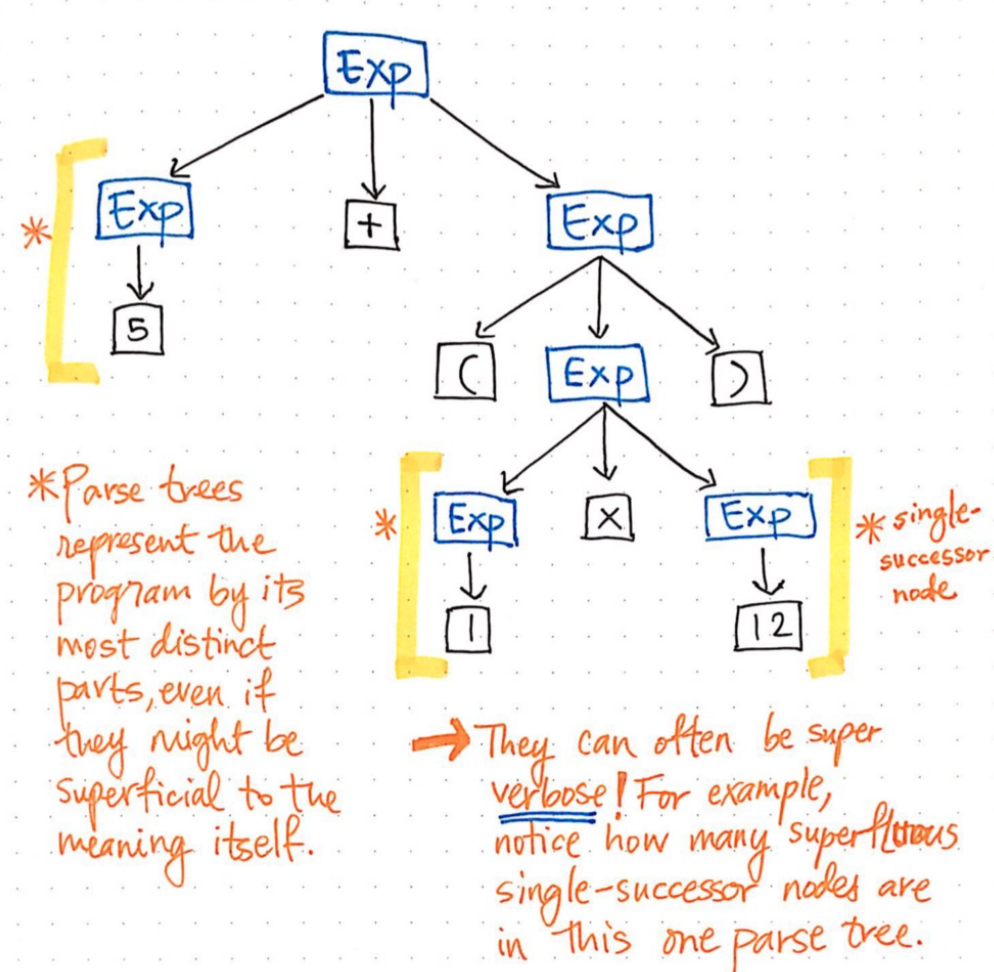 Exp
Exp
+
Exp
5
(
Exp
)
*
Exp
x
Exp
1
12
*
* single-
successor
node
*Parse trees
represent the
program by its
most distinct
parts, even if
they might be
superficial to the
meaning itself.
→ They can often be super
verbose! For example,
notice how many superfluous
single-successor nodes are
in this one parse tree.